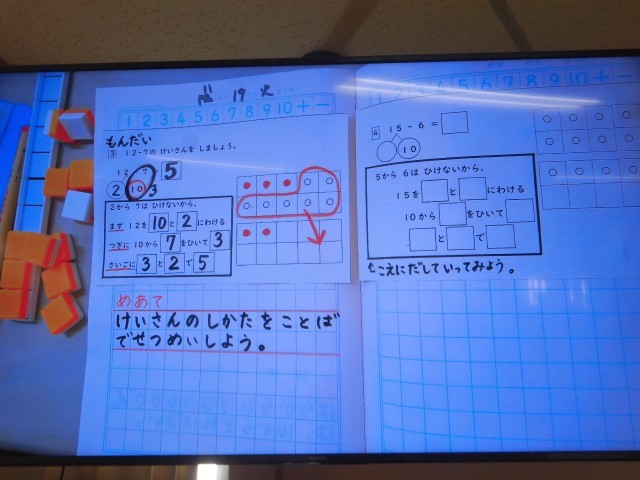 19 火
1 2 3 4 5 6 7 8 9 10 + −
もんだい
3 12−7の けいさんを しましょう。
12 7 5
2 10 3
2から 7は ひけないから、
まず 12を 10 と 2 にわける
つぎに 10から 7 をひいて 3
さいごに 3 と 2 で 5
めあて
けいさんのしかたをことば
でせつめいしよう。
1 2 3 4 5 6 7 8 9 10 + −
4 15−6=
10
5から 6は ひけないから、
15を と にわける
10から をひいて
と で
こえにだしていってみよう。